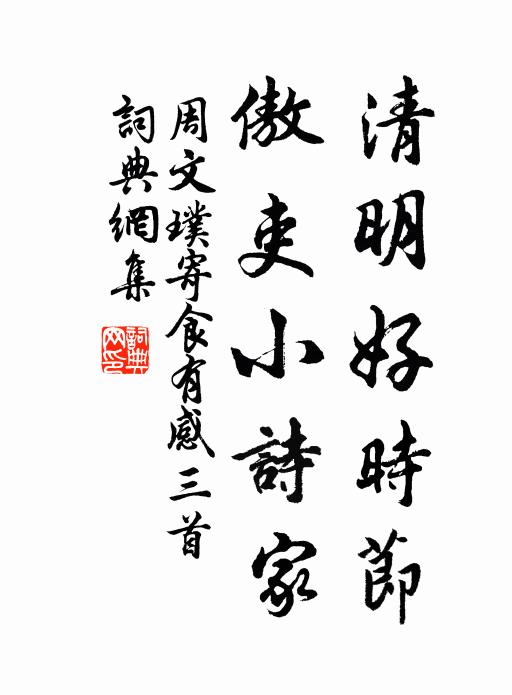 清明好時節
傲吏小詩家
周文璞寄食有感三首
詞典網集
詞典网印